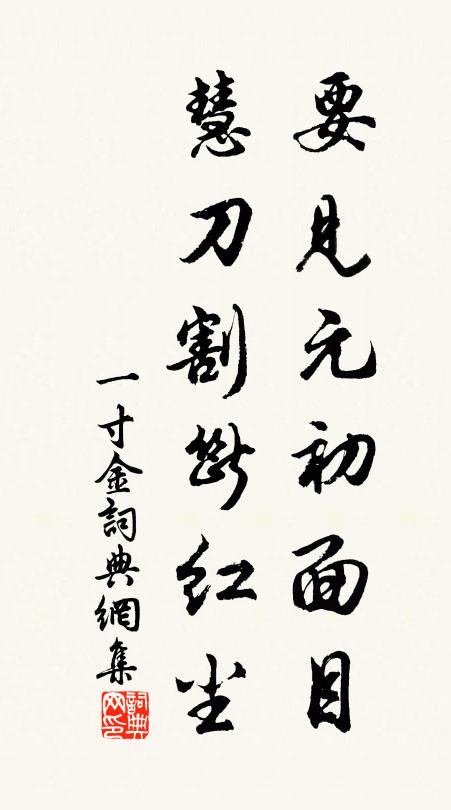 要見元初面目
慧刀割斷红尘
一寸金詞典網集
詞典网印